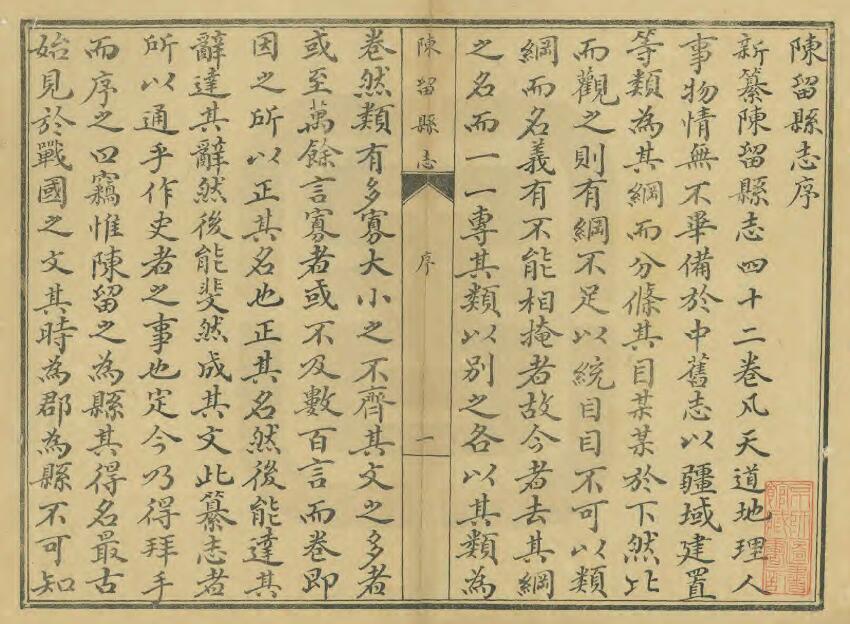 陳留縣志序
新纂陳留縣志四十二卷凡天道地理人
事物情無不畢備於中舊志以疆域建置
等類為其綱而分條其目某某於下然比
而觀之則有綱不足以統目目不可以類
綱而名義有不能相掩者故今者去其綱
之名而一一專其類以別之各以其類為
陳留縣志
序
一
卷然類有多寡大小之不齊其文之多者
或至萬餘言寡者或不及數百言而卷即
因之所以正其名也正其名然後能達其
辭達其辭然後能斐然成其文此纂志者
所以通乎作史者之事也定今乃得拜手
而序之曰竊惟陳留之為縣其得名最古
始見於戰國之文其時為郡為縣不可知